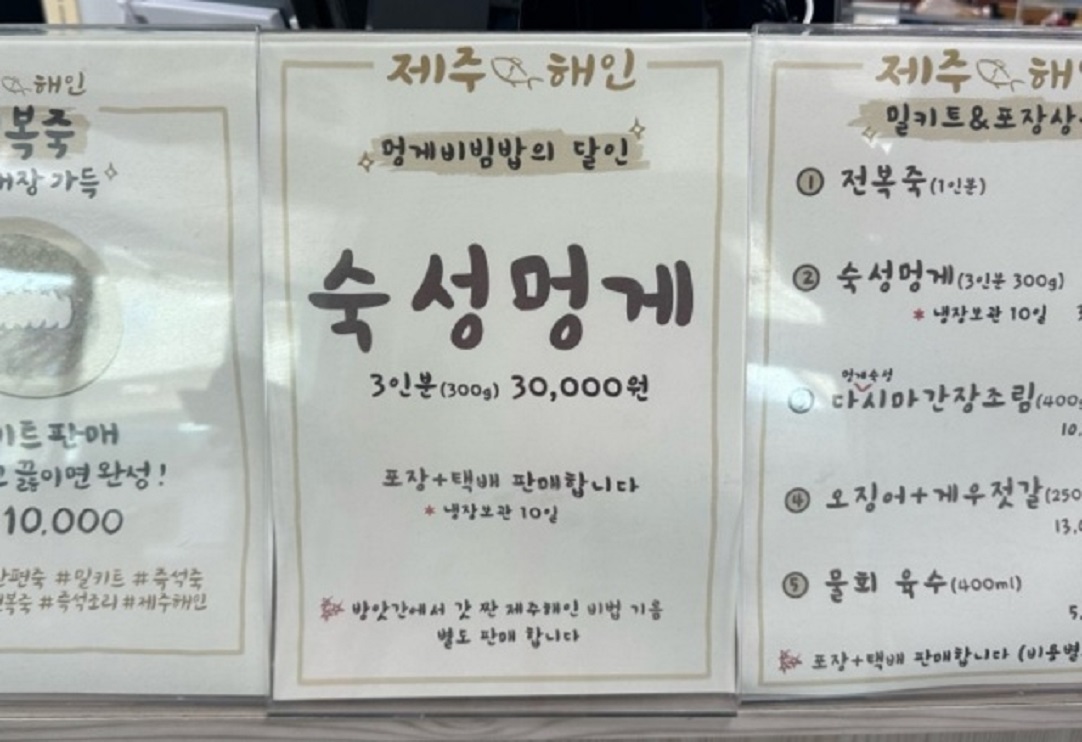 해인
복죽
내장 가득
키트 판매
끓이면 완성!
10,000
간편죽 #밀키트 #즉석죽
전복죽 #즉석조리 #제주해인
제주 해인
멍게비빔밥의 달인
숙성멍게
3인분(300g) 30,000원
포장+택배 판매합니다
* 냉장보관 10일
방앗간에서 갓 짠 제주해인 비법 기름
별도 판매 합니다
제주
밀키트&포장상
① 전복죽(1인분)
② 숙성멍게(3인분 300g)
* 냉장보관 10일
멍게숙성
③ 다시마간장조림(400g
10,
④ 오징어+게우젓갈(250
13,0
⑤ 물회 육수(400ml)
5,
포장+택배 판매합니다 (비용별